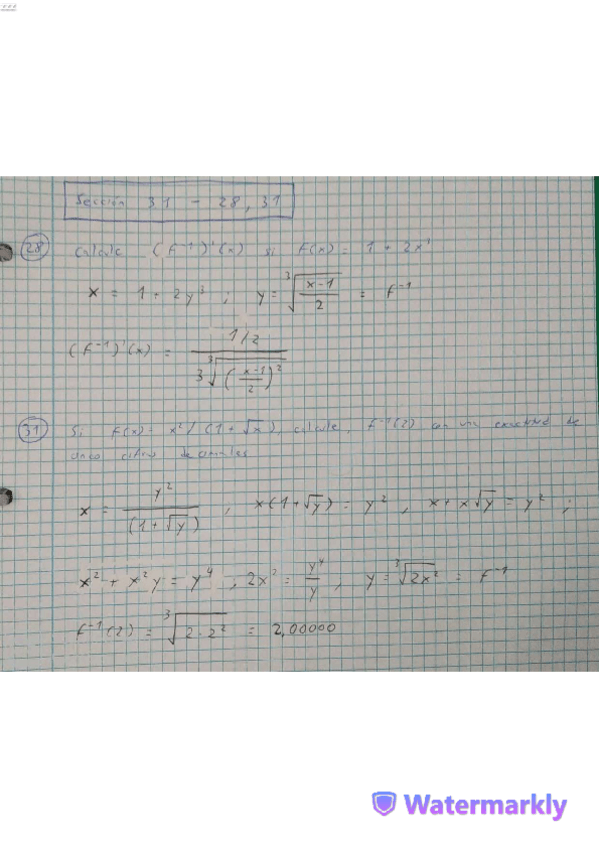 Sección 3.1 - 28, 31
28 Calcule (f⁻¹)'(x) si f(x) = 1 + 2x³
x = 1 + 2y³ ; y = ∛((x-1)/2) = f⁻¹
(f⁻¹)'(x) = (1/2) / (3 ∛(((x-1)/2)²))
31 Si f(x) = x² / (1 + √x), calcule, f⁻¹(2) con una exactitud de
cinco cifras decimales
x = y² / (1 + √y) , x(1 + √y) = y² , x + x√y = y² ;
x² + x²y = y⁴ , 2x² = y⁴/y , y = ∛(2x²) = f⁻¹
f⁻¹(2) = ∛(2·2²) = 2,00000
Watermarkly